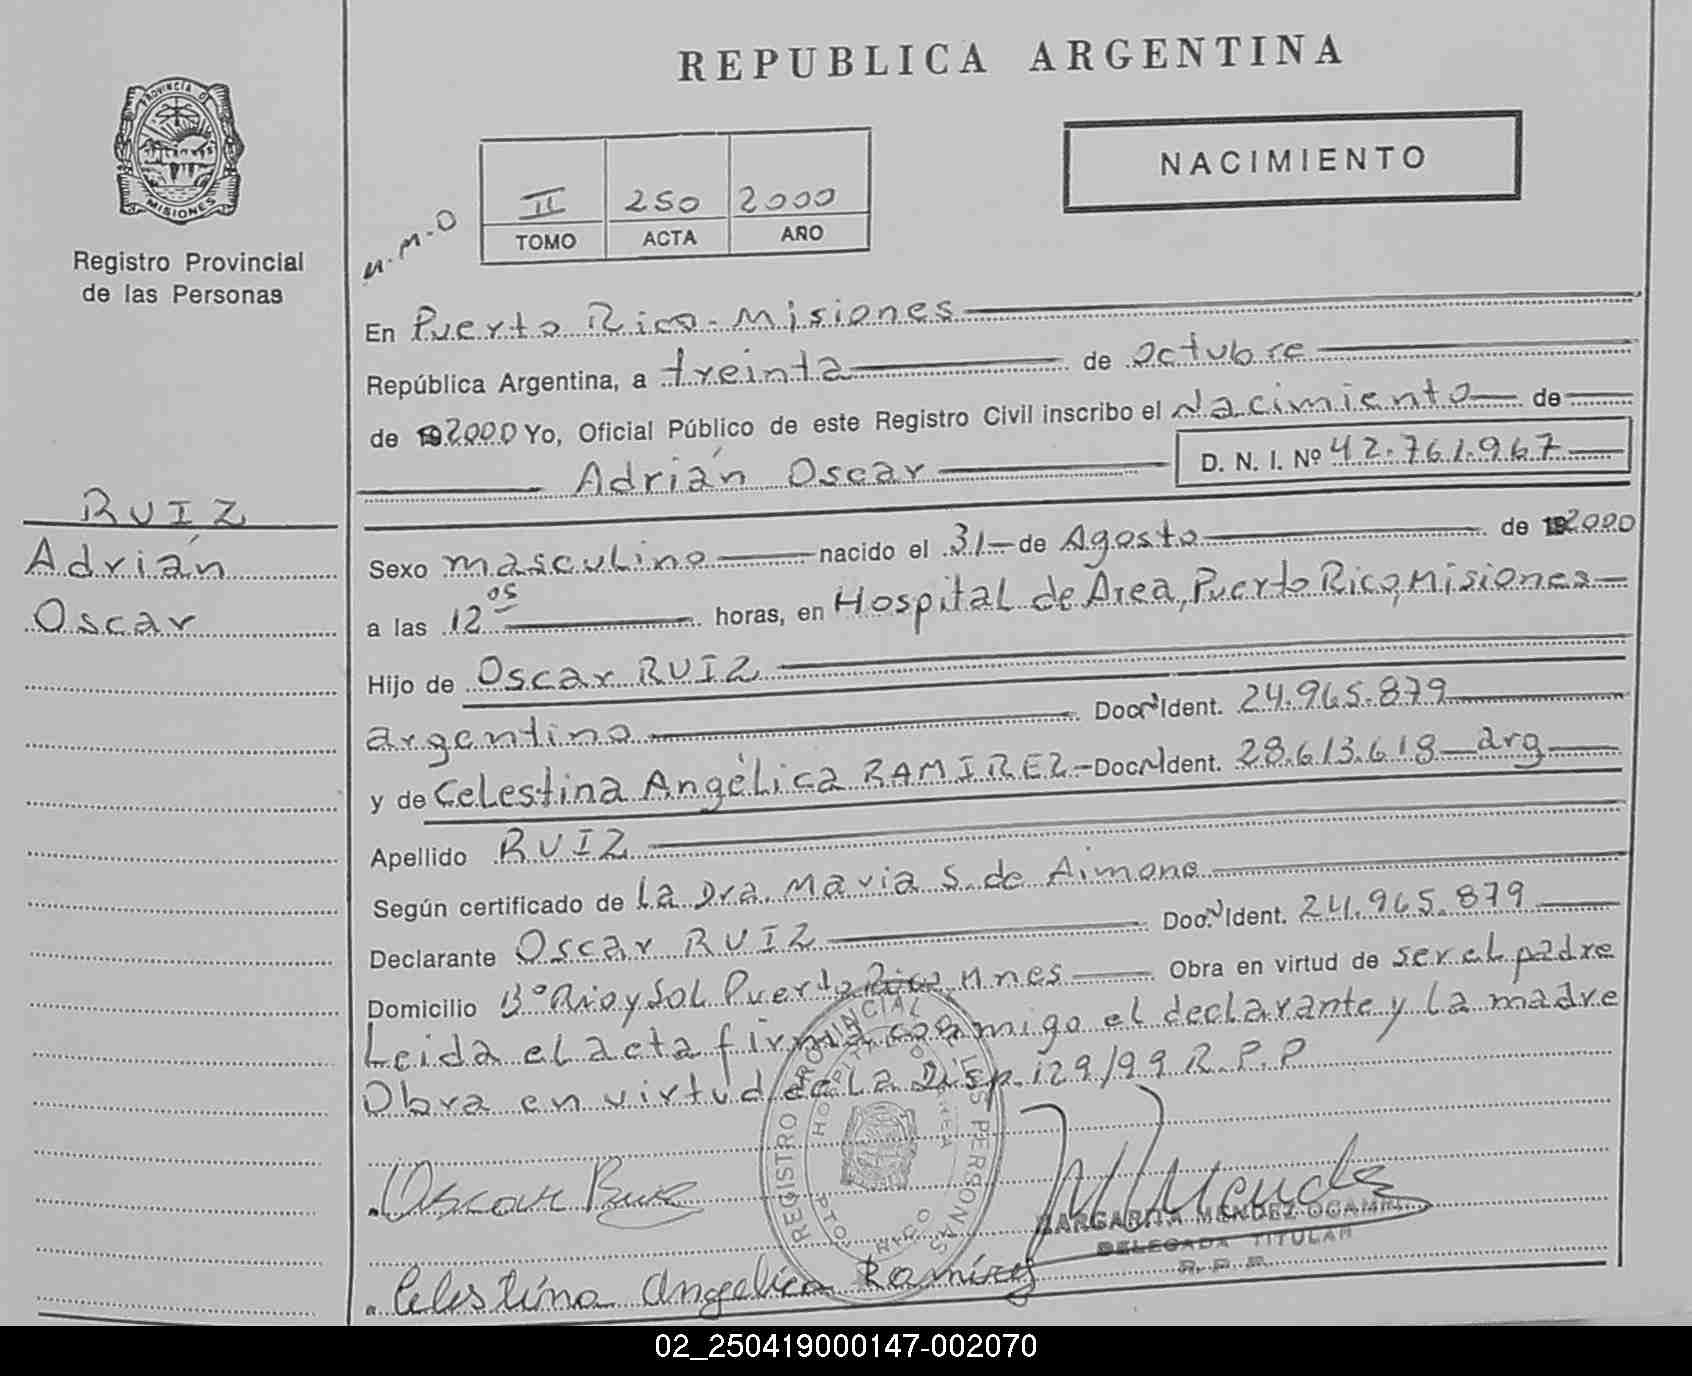 REPUBLICA ARGENTINA
PROVINCIA DE
MISIONES
Registro Provincial
de las Personas
NACIMIENTO
II 250 2000
TOMO ACTA AÑO
M.M.O
En Puerto Rico-Misiones
República Argentina, a treinta de octubre
de 2000 Yo, Oficial Público de este Registro Civil inscribo el Nacimiento de
Adrián Oscar D. N. I. Nº 42.761.967
RUIZ
Adrián
Oscar
Sexo masculino nacido el 31 de Agosto de 2000
a las 12 05 horas, en Hospital de Area, Puerto Rico, Misiones
Hijo de Oscar RUIZ
argentino Doc. N Ident. 24.965.879
y de Celestina Angélica RAMIREZ - Doc. N Ident. 28.613.618 arg
Apellido RUIZ
Según certificado de La Dra. Maria S. de Aimone
Declarante Oscar RUIZ Doc. N Ident. 24.965.879
Domicilio Bº Rio y Sol Puerto Rico, Mnes Obra en virtud de ser el padre
Leida el acta firma conmigo el declarante y la madre
Obra en virtud de La Disp. 129/99 R.P.P
REGISTRO PROVINCIAL DE LAS PERSONAS
HOSPITAL DE AREA
PTO. RICO
Oscar Ruiz
MARGARITA MENDEZ OCAMPO
DELEGADA TITULAR
R. P. P.
Celestina Angelica Ramírez
02_250419000147-002070